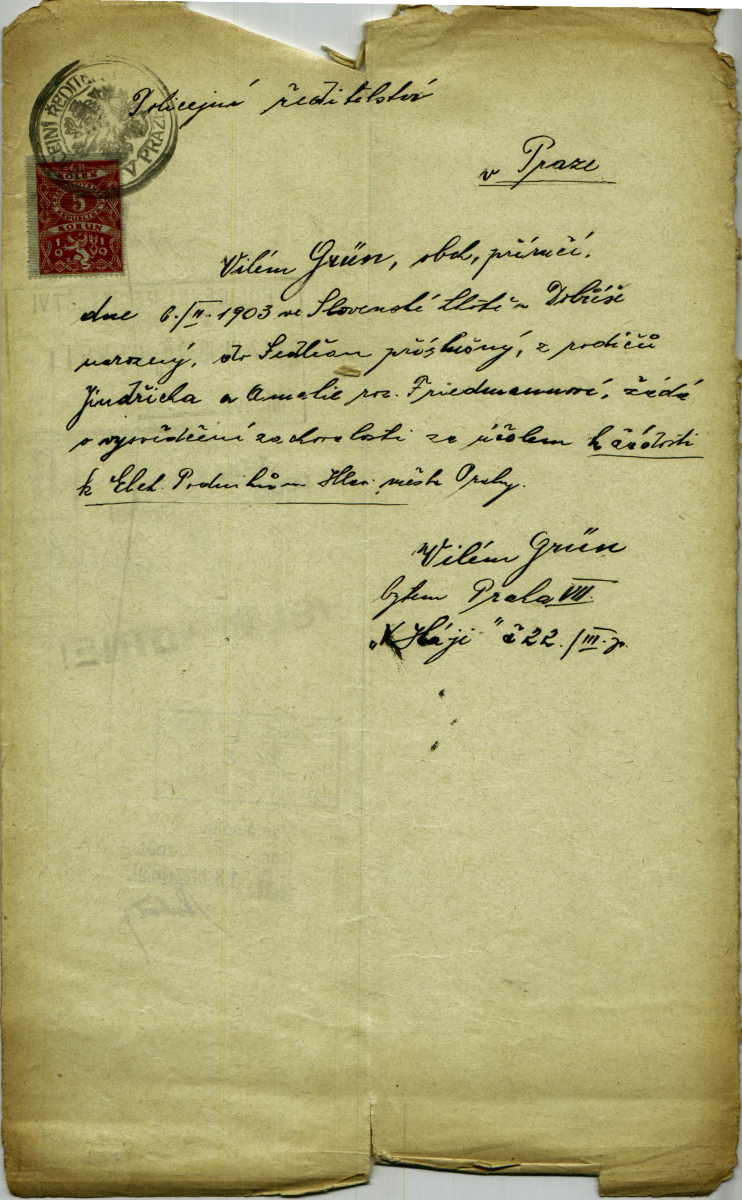 Policejní ředitelství
v Praze
POLICEJNÍ ŘEDITEL V PRAZE
KOLEK
5
KORUN
1919
Vilém Grün, obch. příručí,
dne 6./II. 1903 ve Slovenské Lhotě u Dobříše
narozený, do Sedlčan příslušný, z rodičů
Jindřicha a Amalie roz. Friedmannové, žádá
o vysvědčení zachovalosti za účelem k žádosti
k Elek. Podnikům Hlav. města Prahy.
Vilém Grün
bytem Praha VII.
"K Háji" č 22./III. p.